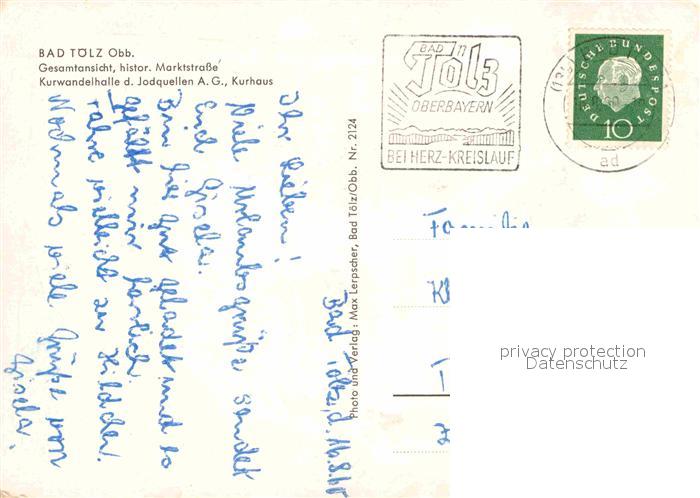 BAD TÖLZ Obb.
Gesamtansicht, histor. Marktstraße
Kurwandelhalle d. Jodquellen A. G., Kurhaus
BAD
Tölz
OBERBAYERN
BEI HERZ-KREISLAUF
DEUTSCHE BUNDESPOST
10
ad
Photo und Verlag: Max Lerpscher, Bad Tölz/Obb. Nr. 2124
Bad Tölz, d.
Ihr Lieben!
Viele Urlaubsgrüße sendet
Euch Gisela.
Bin hier gut gelandet und es
gefällt mir herrlich.
fahre vielleicht zu
Nochmals viele Grüße von
Gisela.
Familie
K
T
privacy protection
Datenschutz